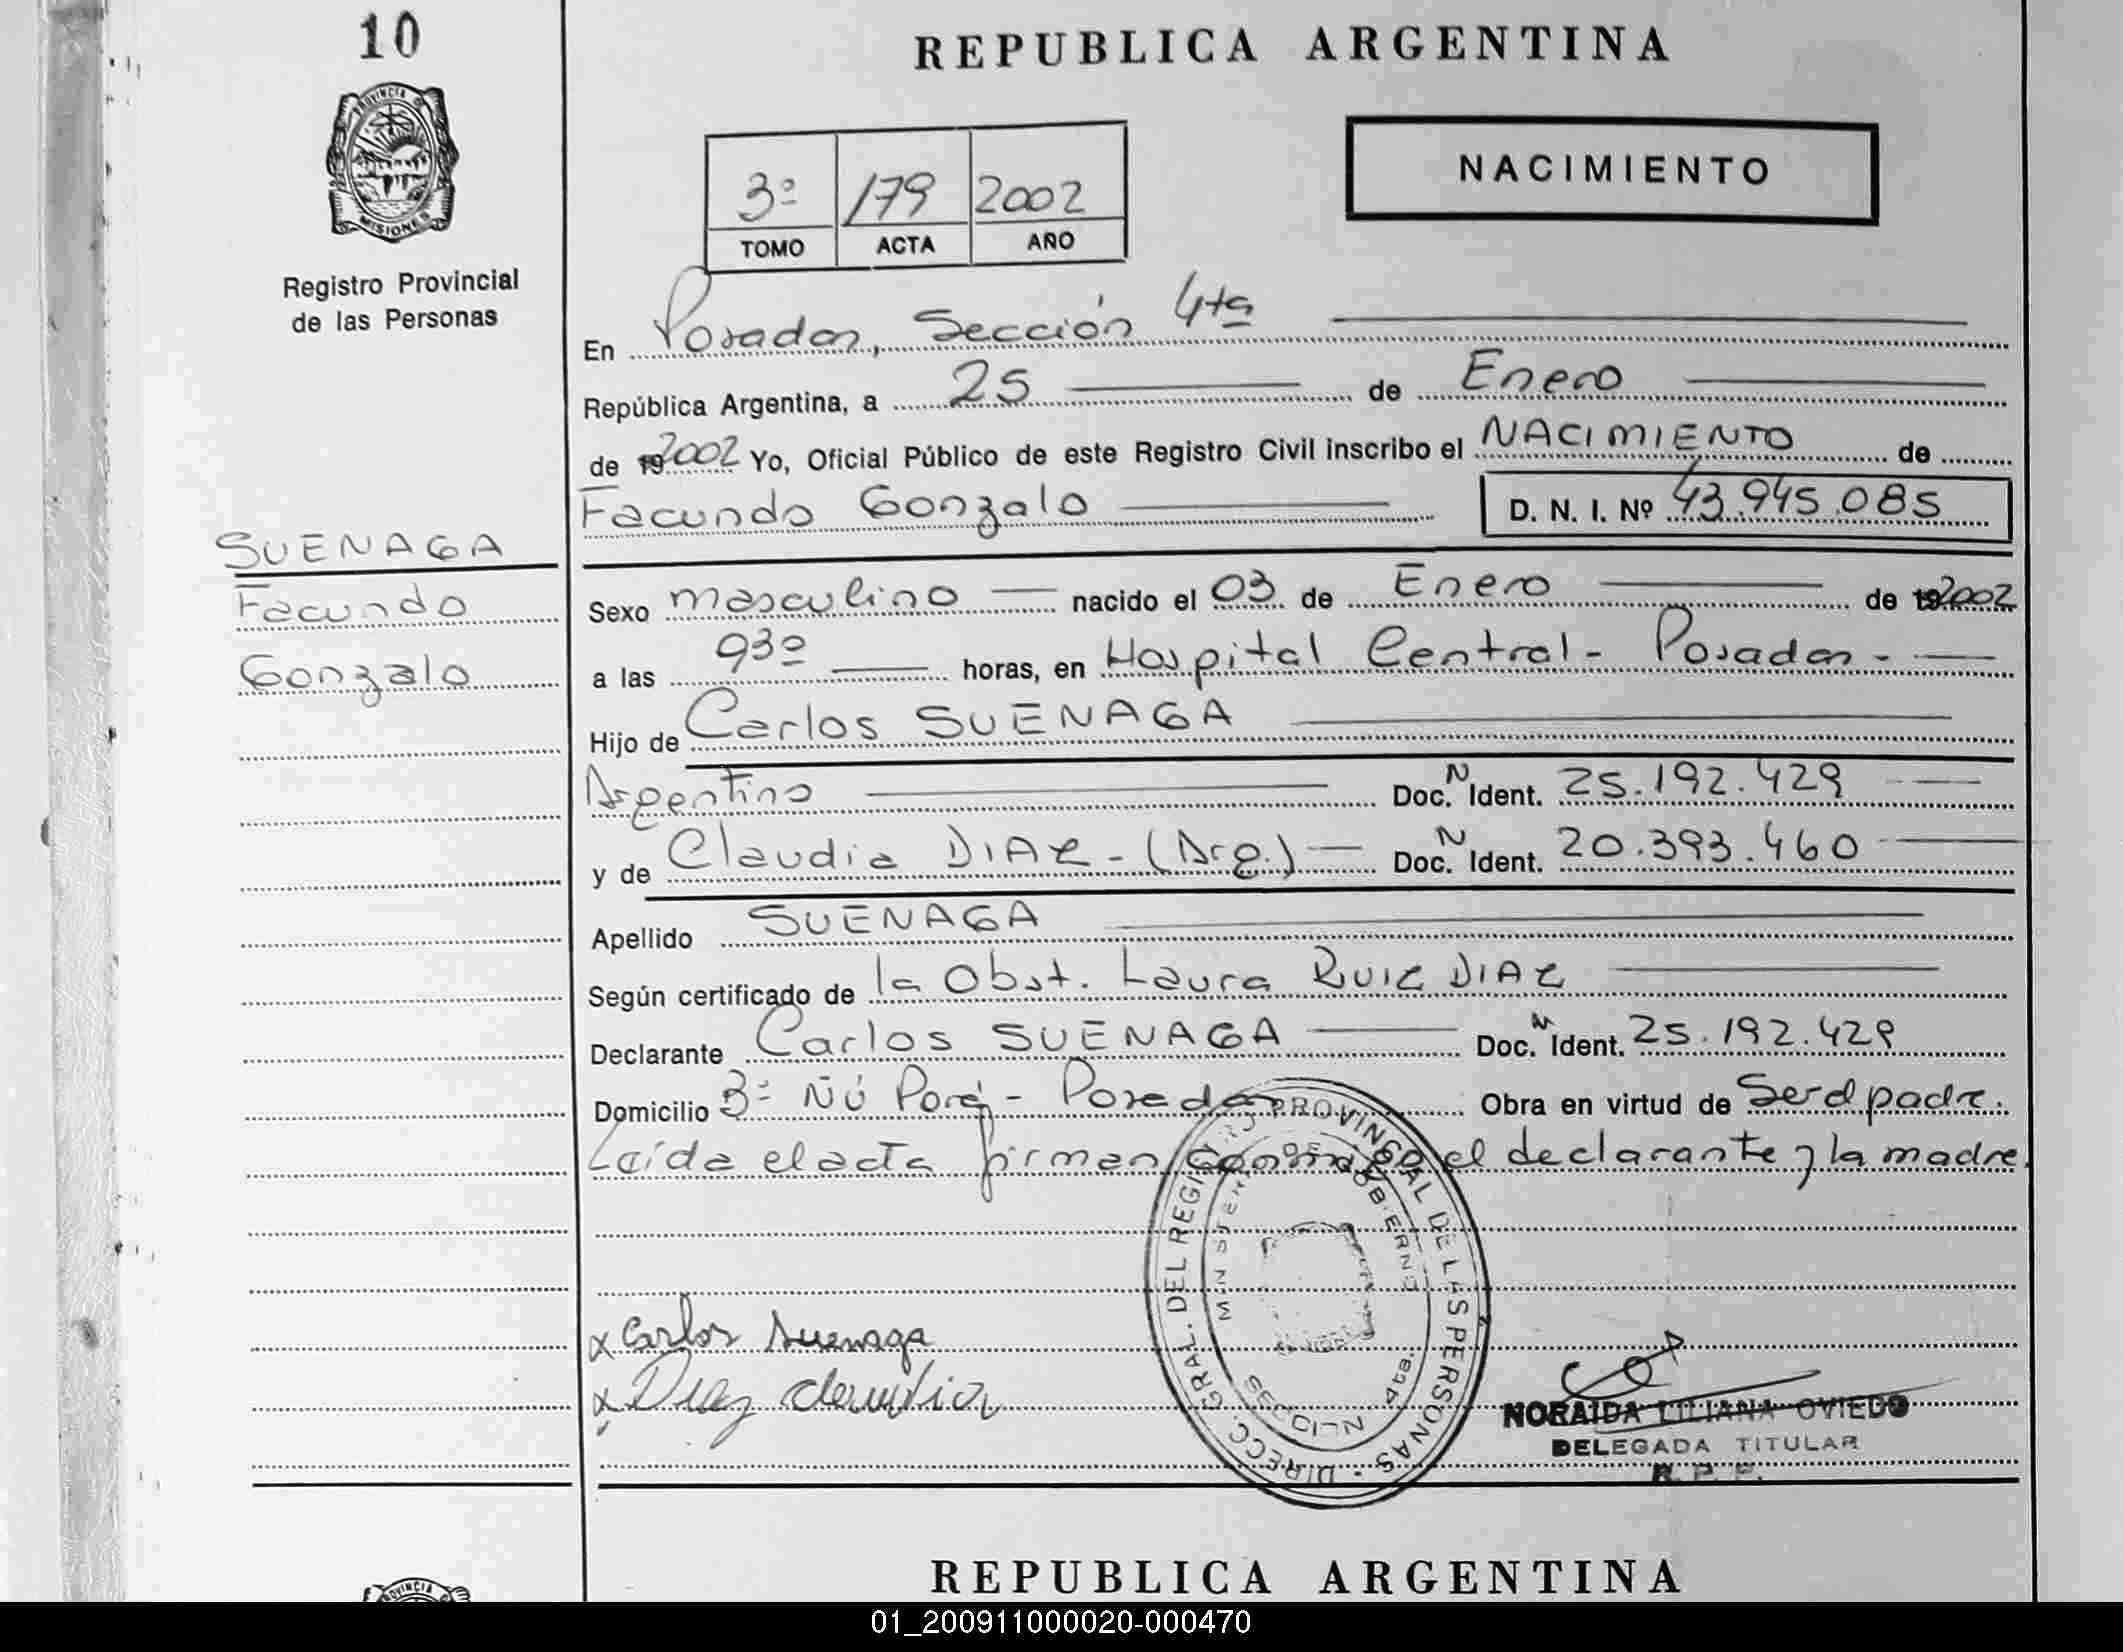 10
REPUBLICA ARGENTINA
PROVINCIA D
MISIONES
NACIMIENTO
3º 179 2002
TOMO ACTA AÑO
Registro Provincial
de las Personas
En Posadas, Sección 4ta
República Argentina, a 25 de Enero
de 192002 Yo, Oficial Público de este Registro Civil inscribo el NACIMIENTO de
Facundo Gonzalo D. N. I. Nº 43.945.085
SUENAGA
Facundo
Gonzalo
Sexo masculino nacido el 03 de Enero de 192002
a las 93º horas, en Hospital Central - Posadas -
Hijo de Carlos SUENAGA
Argentino Doc. N Ident. 25.192.429
y de Claudia DIAZ - (Arg.) Doc. N Ident. 20.393.460
Apellido SUENAGA
Según certificado de la Obst. Laura RUIZ DIAZ
Declarante Carlos SUENAGA Doc. N Ident. 25.192.429
Domicilio Bº Ñú Porá - Posadas Obra en virtud de Ser el padre.
Leída el acta firman conmigo el declarante y la madre.
DIRECC. GRAL. DEL REGISTRO PROVINCIAL DE LAS PERSONAS
MINISTERIO DE GOBIERNO
SECCION 4ta.
x Carlos Suenaga
x Diaz Claudia
NORAIDA LILIANA OVIEDO
DELEGADA TITULAR
R. P. P.
REPUBLICA ARGENTINA
PROVINCIA
01_200911000020-000470